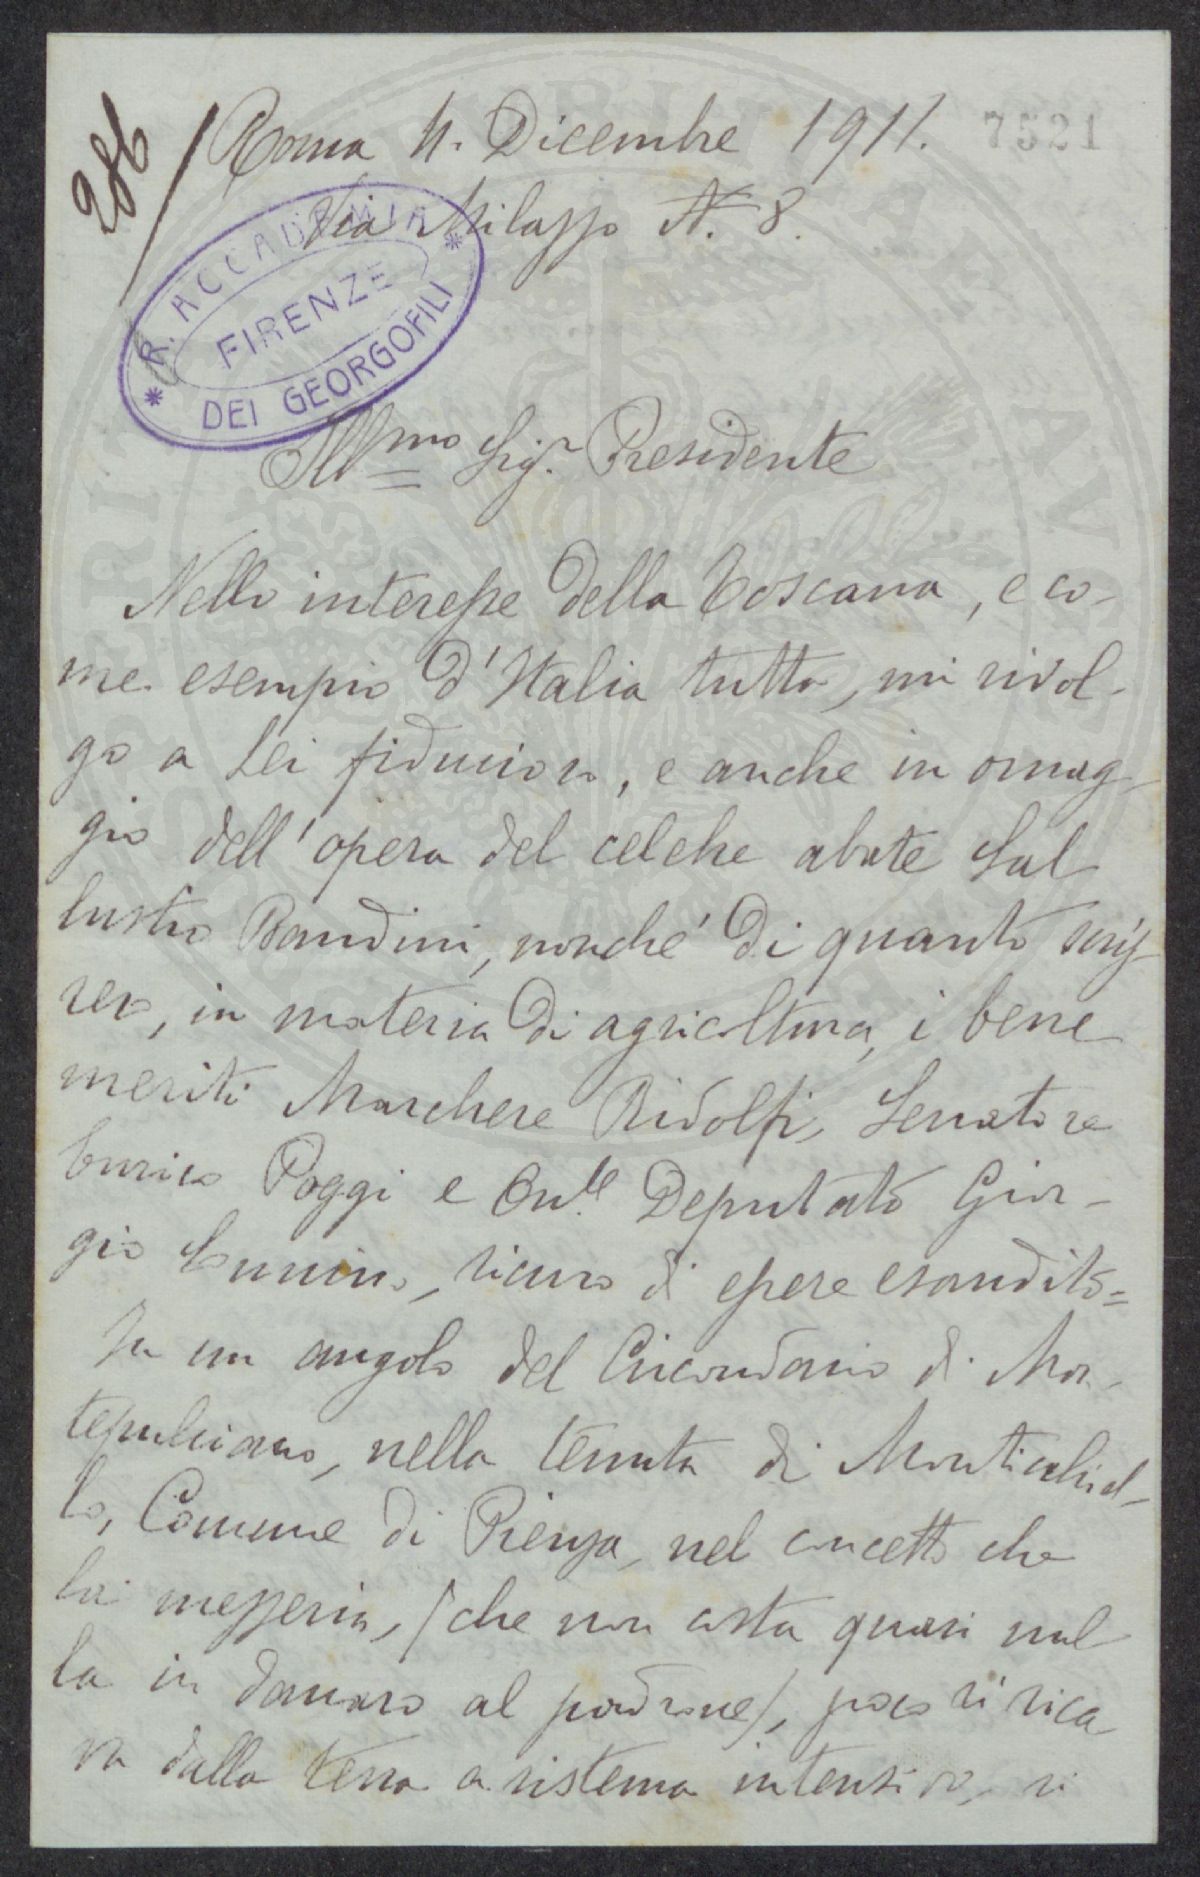 286
Roma 4. Dicembre 1911.
7521
Via Milazzo N. 8.
R. ACCADEMIA
FIRENZE
DEI GEORGOFILI
Illmo Sigr. Presidente
Nello interesse della Toscana, e co-
me esempio d'Italia tutta, mi rivol-
go a Lei fiducioso, e anche in omag-
gio dell'opera del celebre abate Sal
lustio Bandini, nonché di quanto scris-
sero, in materia di agricoltura, i bene
meriti Marchese Ridolfi, Senatore
Enrico Poggi e On.le Deputato Gior-
gio Sonnino, sicuro di essere esaudito=
In un angolo del Circondario di Mon-
tepulciano, nella tenuta di Monticchiel-
lo, Comune di Pienza, nel concetto che
la mezzeria, (che non costa quasi nul
la in danaro al padrone), poco si rica
va dalla terra a sistema intensivo, si